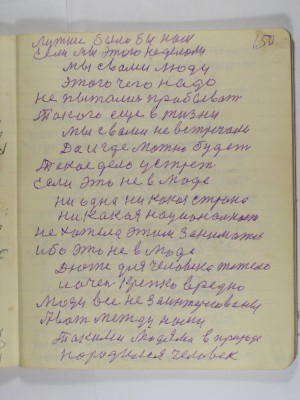 150
лутше было бы нам
если мы этого неделали
мы свами люди
этого чего надо
не пытались пробыват
Такого еще в жизни
мы свами не встречали
Да и где можно будет
Такое дело
если это не в моде
ни одна ни какая страна
ни какая национальност
не хотела этим заниматся
ибо это не в моде
для человека тяжело
и очен крепко вредно
люди все не заинтересованы
Так между нами
Такими людями в природе
народился человек